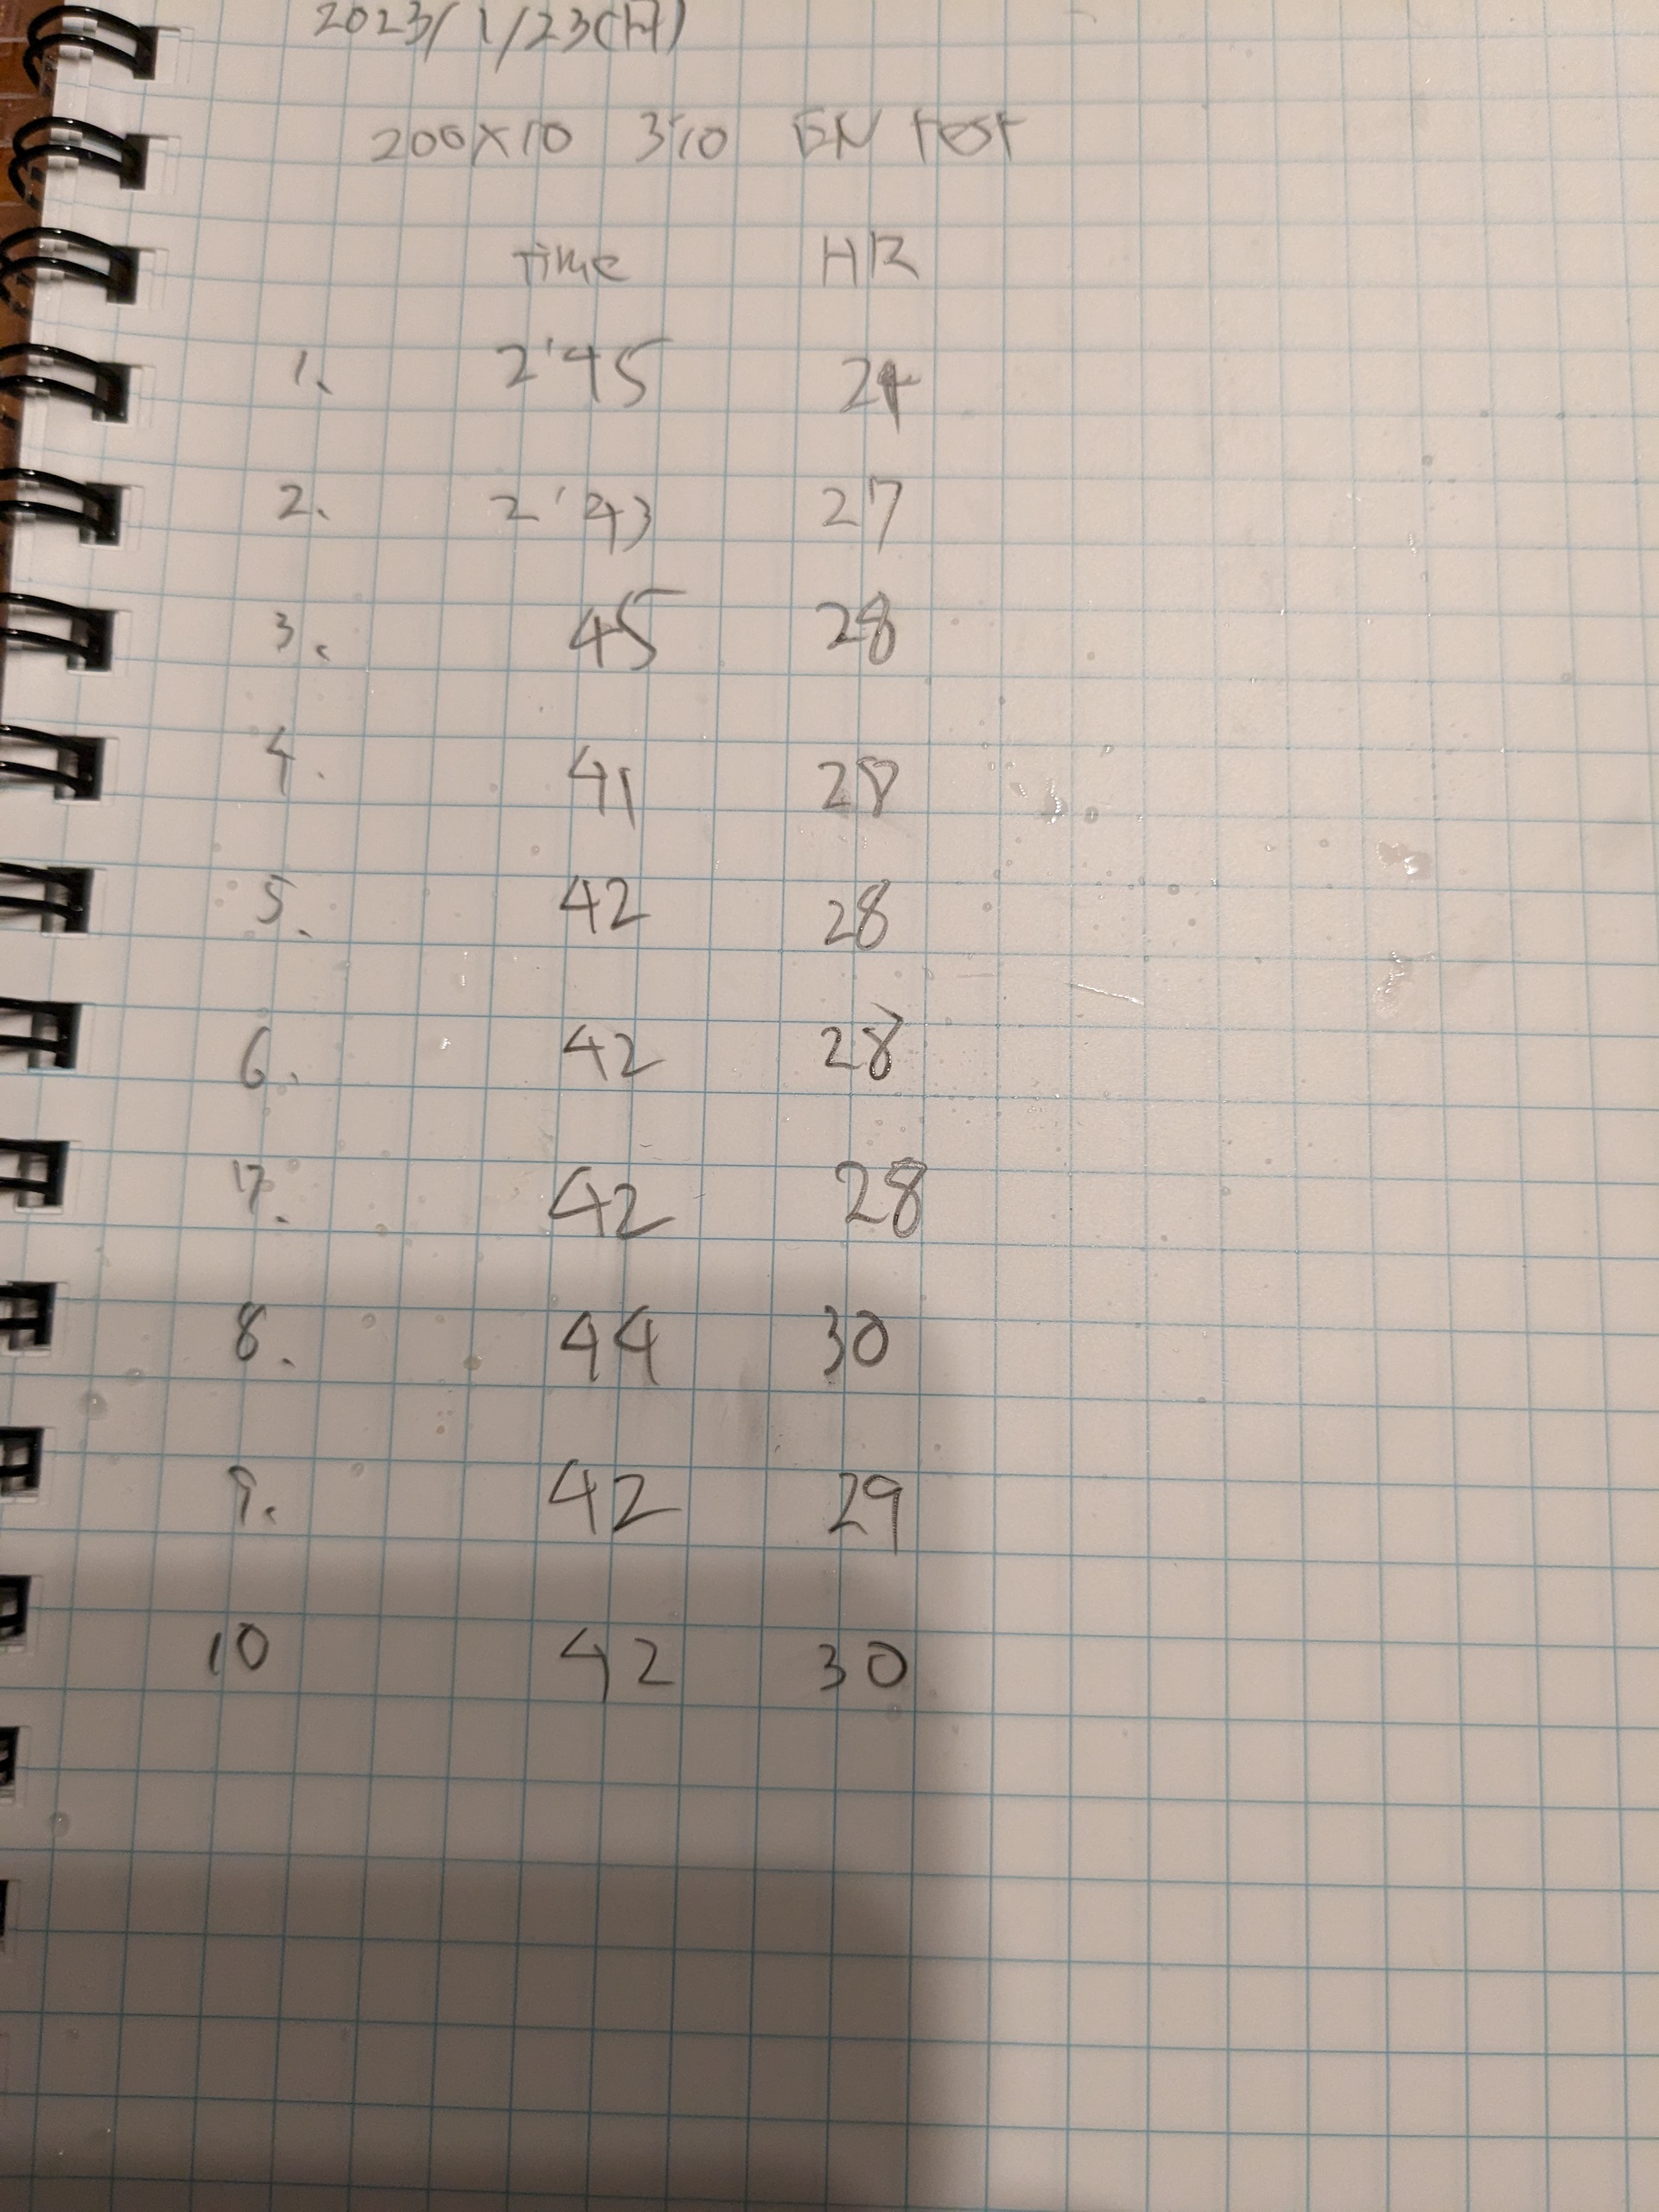 2023/1/23(月)
200×10 3'10 EN test
Time HR
1. 2'45 24
2. 2'43 27
3. 45 28
4. 41 28
5. 42 28
6. 42 28
7. 42 28
8. 44 30
9. 42 29
10 42 30